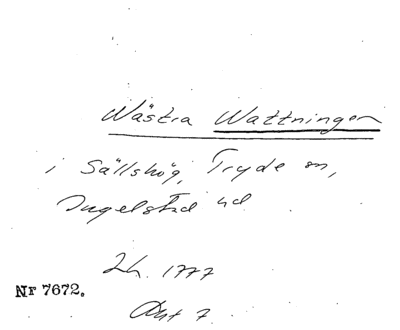 Wästra Wattningen
i Sällshög, Tryde sn,
Ingelstad hd
Lh. 1777
Nr 7672.
Akt 7